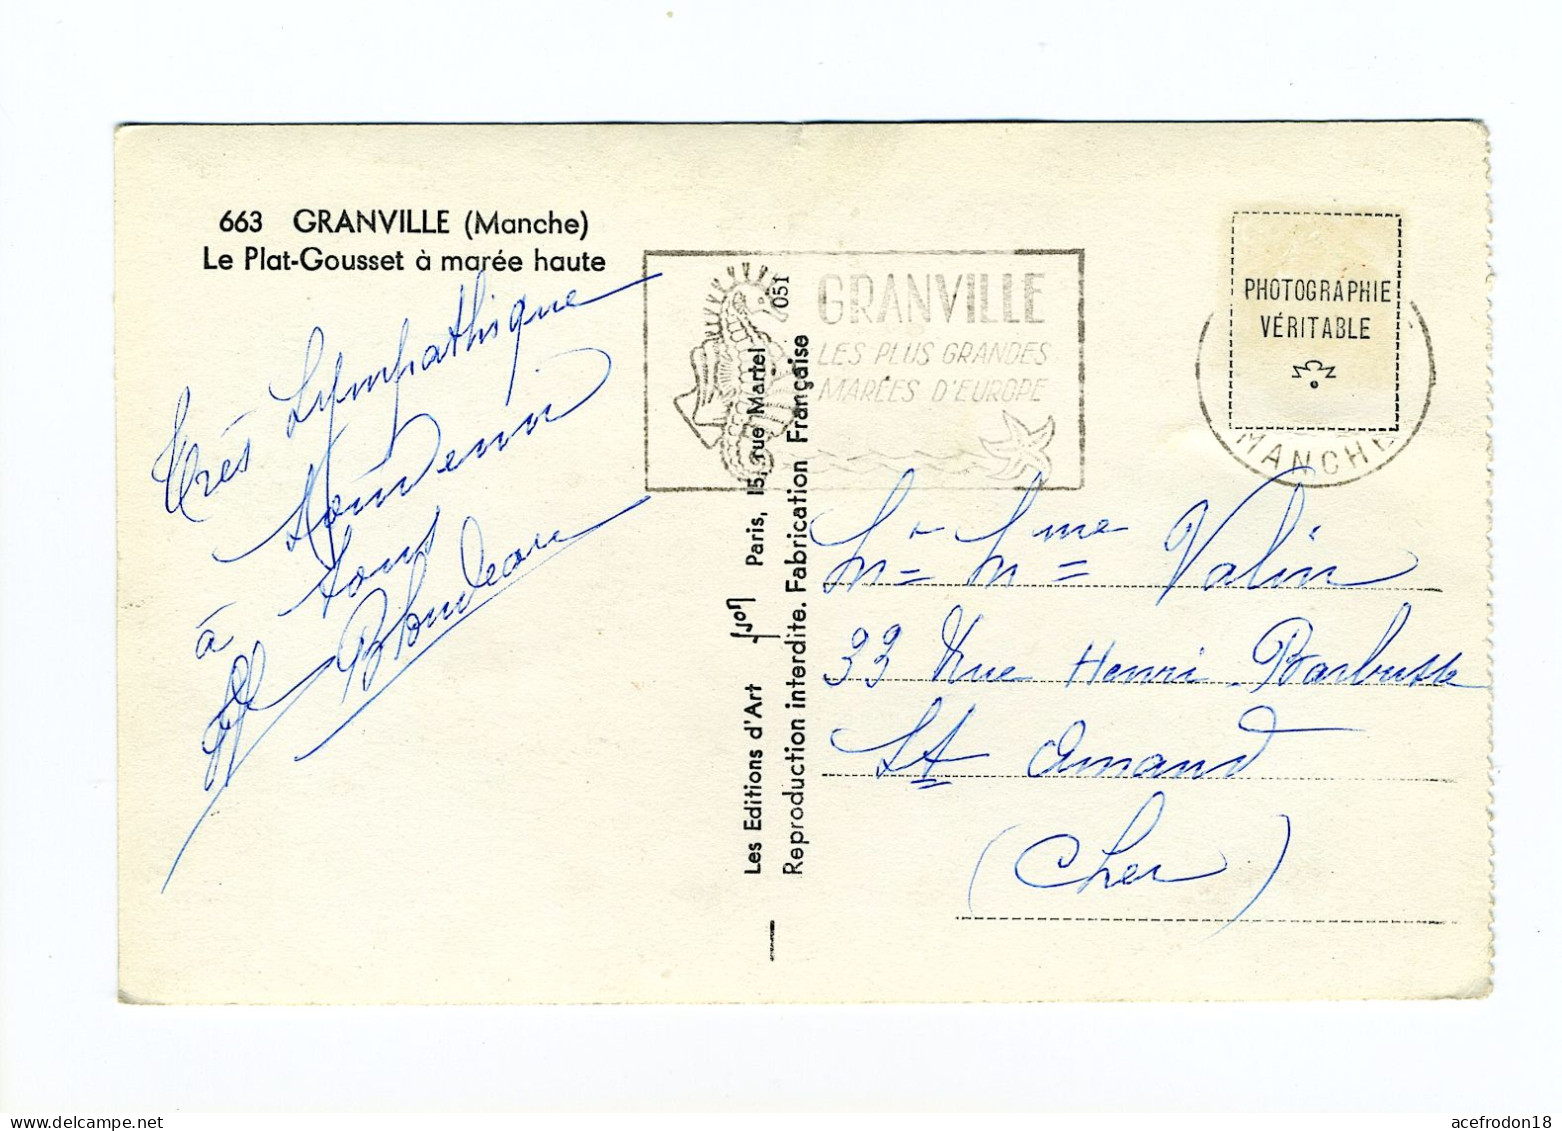 663 GRANVILLE (Manche)
Le Plat-Gousset à marée haute
Très Sympathique
Souvenir
à tous
Blondeau
Les Editions d'Art Yvon Paris, 15, rue Martel 051
Reproduction interdite. Fabrication Française
GRANVILLE
LES PLUS GRANDES
MARÉES D'EUROPE
PHOTOGRAPHIE
VÉRITABLE
MANCHE
Mr Mme Valin
33 Rue Henri Barbusse
St Amand
(Cher)
acefrodon18